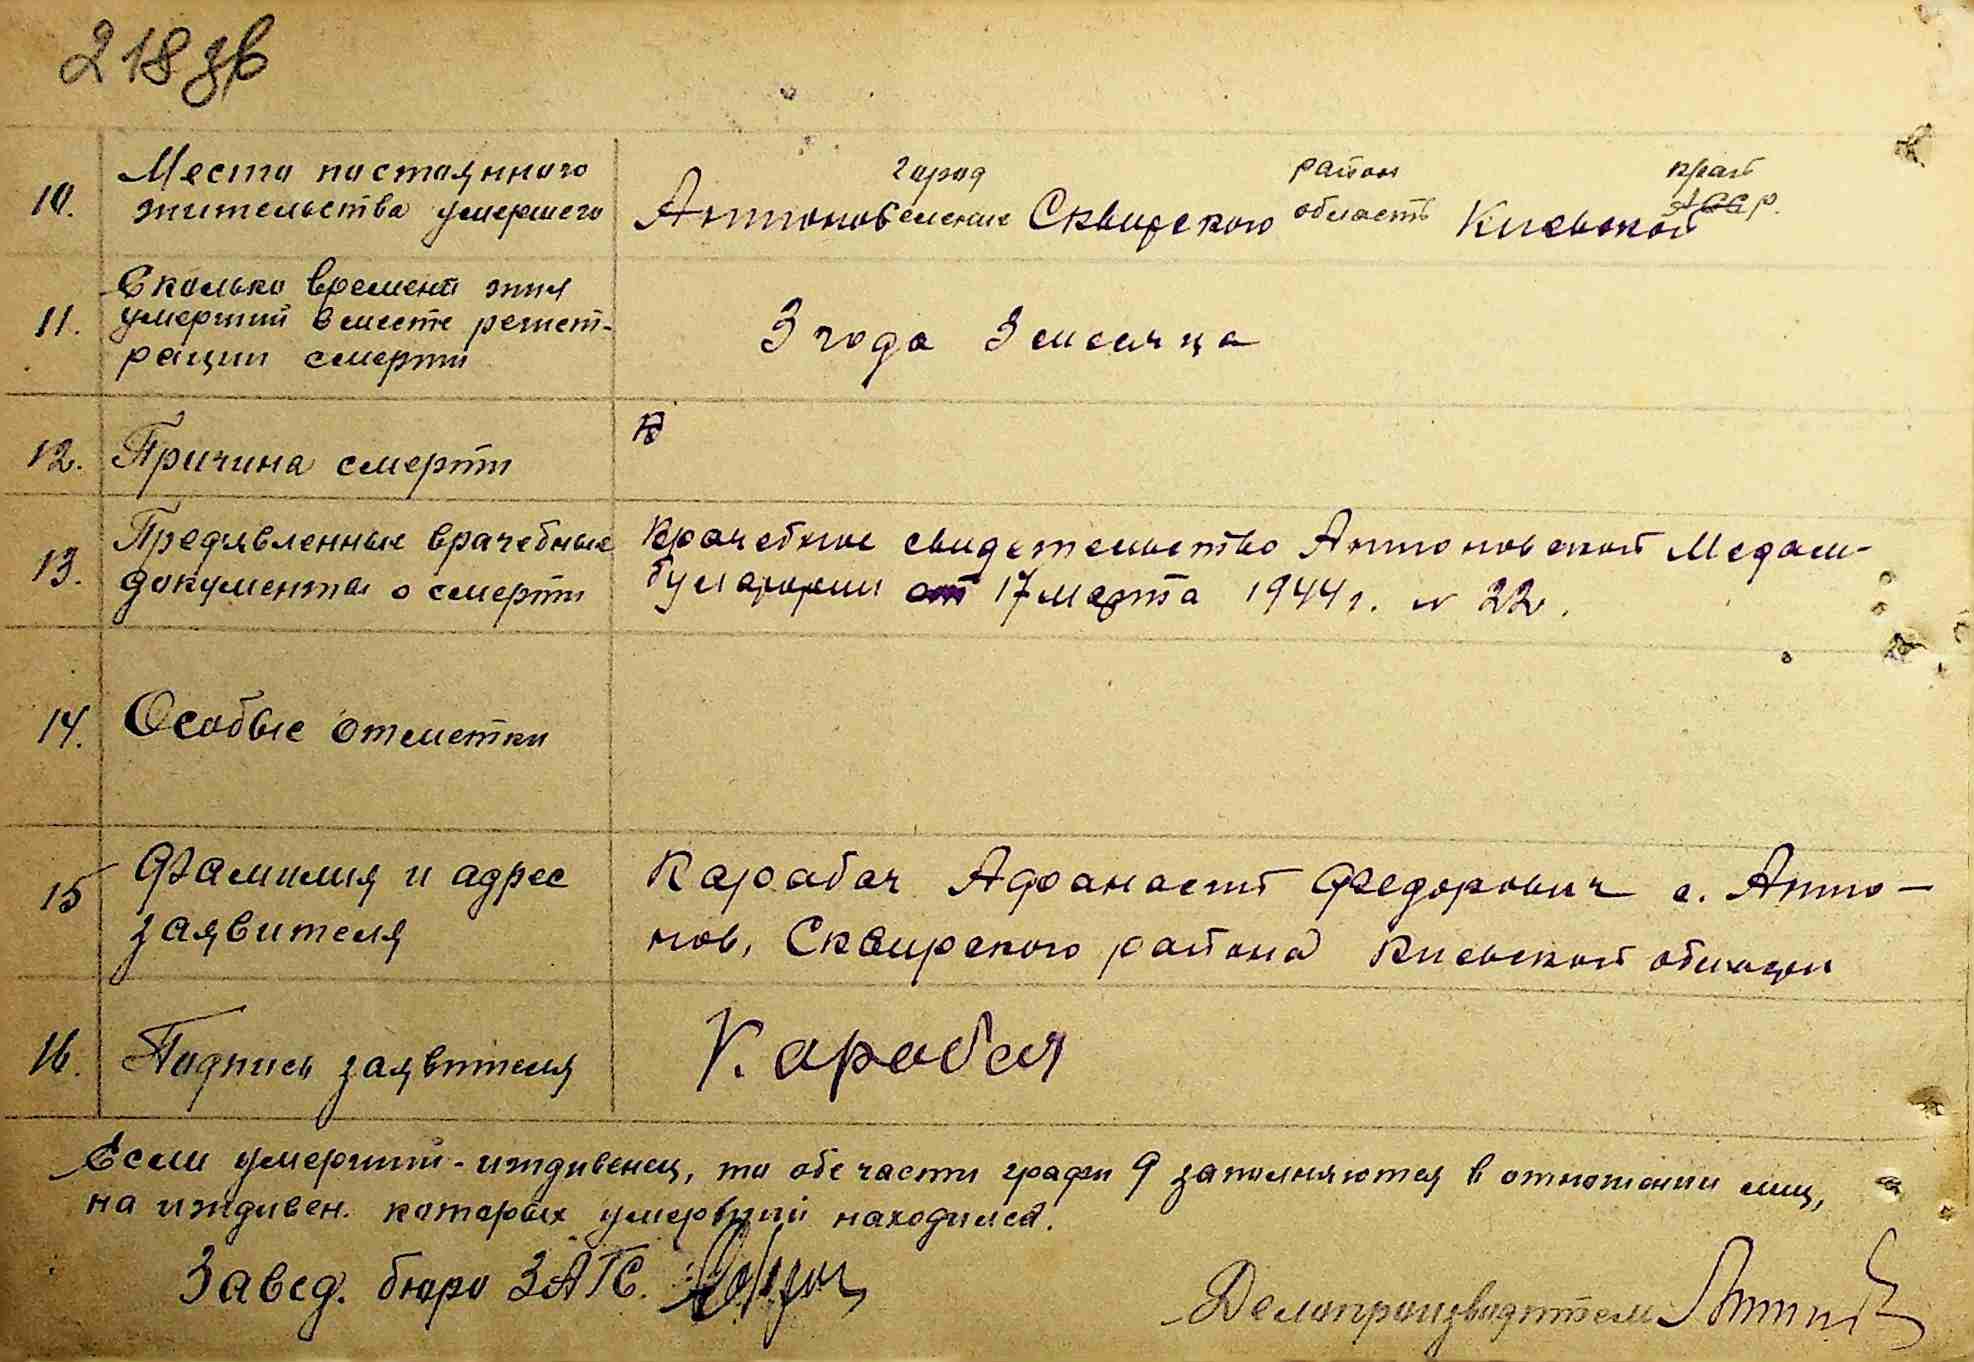 218 зв
10. Место постоянного город район край
жительства умершего Антонов селение Сквирского область Киевской АССР.
11. Сколько времени жил
умерший в месте регист-
рации смерти 3 года 3 месяца
12. Причина смерти
13. Предявленные врачебные Врачебное свидетельство Антоновской Медам-
документы о смерти булатории от 17 марта 1944 г. № 22.
14. Особые отметки
15 Фамилия и адрес Карабач Афанасий Федорович с. Анто-
заявителя нов, Сквирского района Киевской области
16. Подпись заявителя
Если умерший-иждивенец, то обе части графы 9 заполняются в отношении лиц,
на иждивен. которых умерший находился.
Завед. бюро ЗАГС.
Делопроизводитель